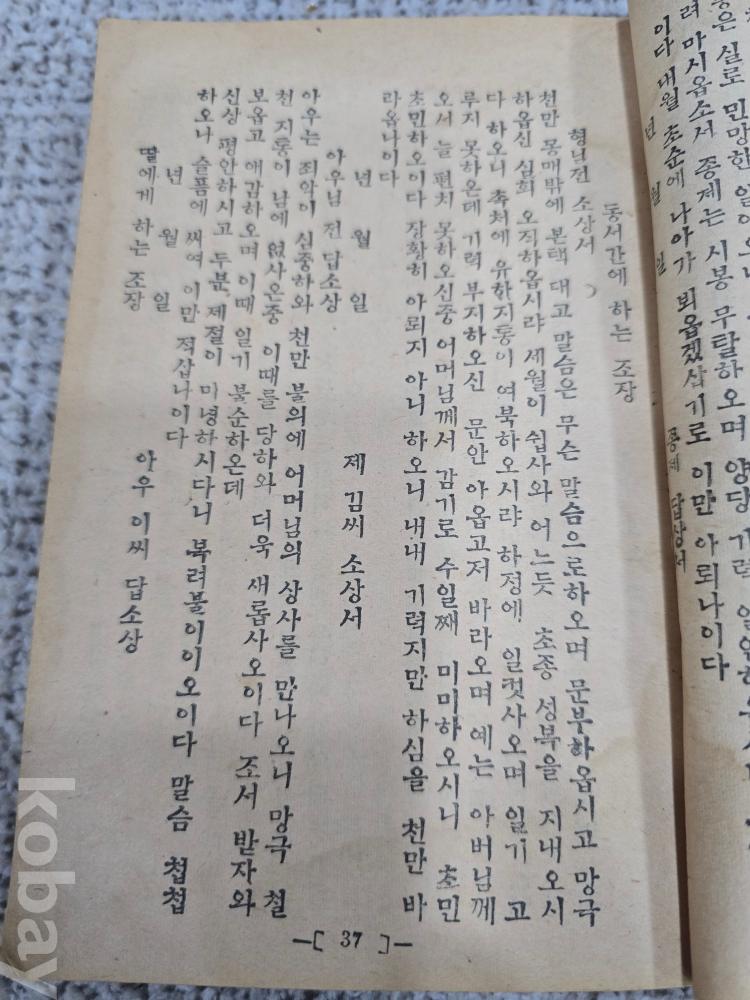 은 실로 민망한 일이오니
려 마시옵소서 종제는 시봉 무탈하오며 양당 기력 일안하
이다 내월 초순에 나아가 뵈옵겠삽기로 이만 아뢰나이다
년 월 일
종제 답상서
동서간에 하는 조장
형님전 소상서
천만 몽매밖에 본택 대고 말슴은 무슨 말슴으로하오며 문부하옵시고 망극
하옵신 심회 오직하옵시랴 세월이 쉽사와 어느듯 초종 성복을 지내오시
다 하오니 촉처에 유하지통이 여북하오시랴 하정에 일컷사오며 일기 고
루지 못하온데 기력 부지하오신 문안 아옵고저 바라오며 예는 아버님께
오서 늘 편치 못하오신중 어머님께서 감기로 수일째 미미하오시니 초민
초민하오이다 장황히 아뢰지 아니 하오니 내내 기력지만 하심을 천만 바
라옵나이다
년 월 일
제 김씨 소상서
아우님 전 답소상
아우는 죄악이 심중하와 천만 불의에 어머님의 상사를 만나오니 망극 철
천 지통이 남에 없사온중 이때를 당하와 더욱 새롭사오이다 조서 받자와
보옵고 애감하오며 이때 일기 불순하온데
신상 평안하시고 두분 제절이 미녕하시다니 복려불이이오이다 말슴 첩첩
하오나 슬픔에 싸여 이만 적삽나이다
년 월 일
아우 이씨 답소상
딸에게 하는 조장
37
kobay